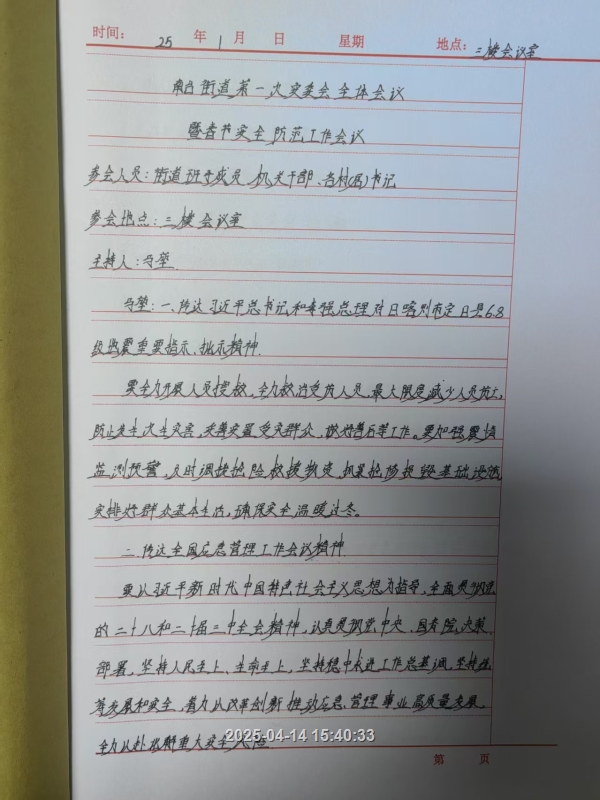 时间: 25 年 1 月 日 星期 地点: 三楼会议室
街道第一次安委会全体会议
暨春节安全防范工作会议
参会人员:街道班子成员、机关干部、各村(居)书记
参会地点:三楼会议室
主持人:马堃
马堃:一、传达习近平总书记和李强总理对日喀则市定日县6.8
级地震重要指示、批示精神.
要全力开展人员搜救,全力救治受伤人员,最大限度减少人员伤亡,
防止发生次生灾害,妥善安置受灾群众,做好善后等工作。要加强震情
监测预警,及时调拨抢险救援物资,抓紧抢修损毁基础设施,
安排好群众基本生活,确保安全温暖过冬。
二、传达全国应急管理工作会议精神
要以习近平新时代中国特色社会主义思想为指导,全面贯彻党
的二十大和二十届三中全会精神,认真贯彻党中央、国务院决策
部署,坚持人民至上、生命至上,坚持稳中求进工作总基调,坚持统
筹发展和安全,着力从改革创新推动应急管理事业高质量发展,
全力从处化解重大安全风险
2025-04-14 15:40:33
第 页